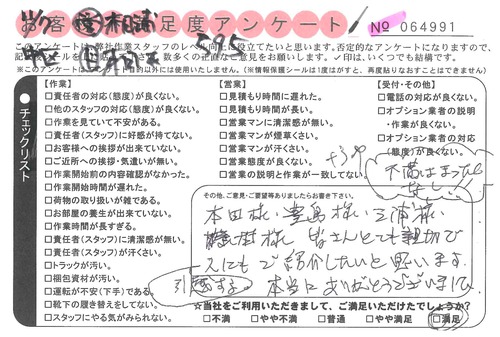 お客様満足度アンケート
No 064991
このアンケートは弊社作業スタッフのレベル向上に役立てたいと思います。否定的なアンケートになりますので、
※このアンケートは
目的以外には使用いたしません。(※情報保護シールは1度はがすと、再度貼りなおすことができません)
チェックリスト
【作業】
□責任者の対応(態度)が良くない。
□他のスタッフの対応(態度)が良くない。
□作業を見ていて不安がある。
□責任者(スタッフ)に好感が持てない。
□お客様への挨拶が出来ていない。
□ご近所への挨拶・気遣いが無い。
□作業開始前の内容確認がなかった。
□作業開始時間が遅れた。
□荷物の取り扱いが雑である。
□お部屋の養生が出来ていない。
□作業時間が長すぎる。
□責任者(スタッフ)に清潔感が無い。
□責任者(スタッフ)が汗くさい。
□トラックが汚い。
□梱包資材が汚い。
□運転が不安(下手)である。
□靴下の履き替えをしてない。
□スタッフにやる気がみられない。
【営業】
□見積もり時間に遅れた。
□見積もり時間が長い。
□営業マンに清潔感が無い。
□営業マンが煙草くさい。
□営業マンが汗くさい。
□営業態度が良くない。
□営業の説明と作業が一致してない。
【受付・その他】
□電話の対応が良くない。
□オプション業者の説明
・作業が良くない。
□オプション業者の対応
(態度)が良くない。
不満はまったく
なし!!
その他、ご意見・ご要望等ありましたらお書き下さい。
本田様、豊島様、三浦様、
様 皆さんとても親切で
人にもご紹介したいと思います。
引越する
本当にありがとうございました
☆当社をご利用いただきまして、ご満足いただけたでしょうか?
□不満 □やや不満 □普通 □やや満足 □満足